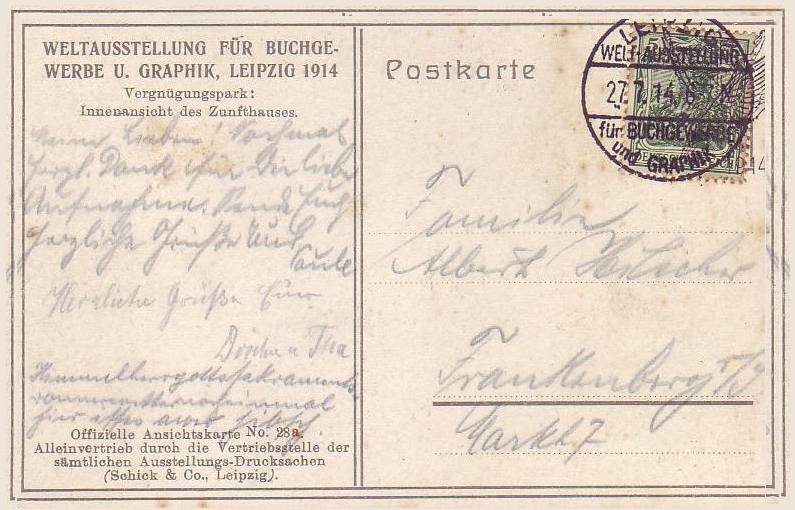 WELTAUSSTELLUNG FÜR BUCHGE-
WERBE U. GRAPHIK, LEIPZIG 1914
Vergnügungspark:
Innenansicht des Zunfthauses.
Meine Lieben! Nochmal
herzl. Dank für die liebe
Aufnahme. Sende Euch
herzliche Grüße
Herzliche Grüße Eure
u. Thea
Himmelherrgottsakraments
hier
Offizielle Ansichtskarte No. 28a.
Alleinvertrieb durch die Vertriebsstelle der
sämtlichen Ausstellungs-Drucksachen
(Schick & Co., Leipzig).
Postkarte
LEIPZIG
WELT-AUSSTELLUNG
27.7.14.
für BUCHGEWERBE
und GRAPHIK
Familie
Albert
Frankenberg i/S
Markt 7